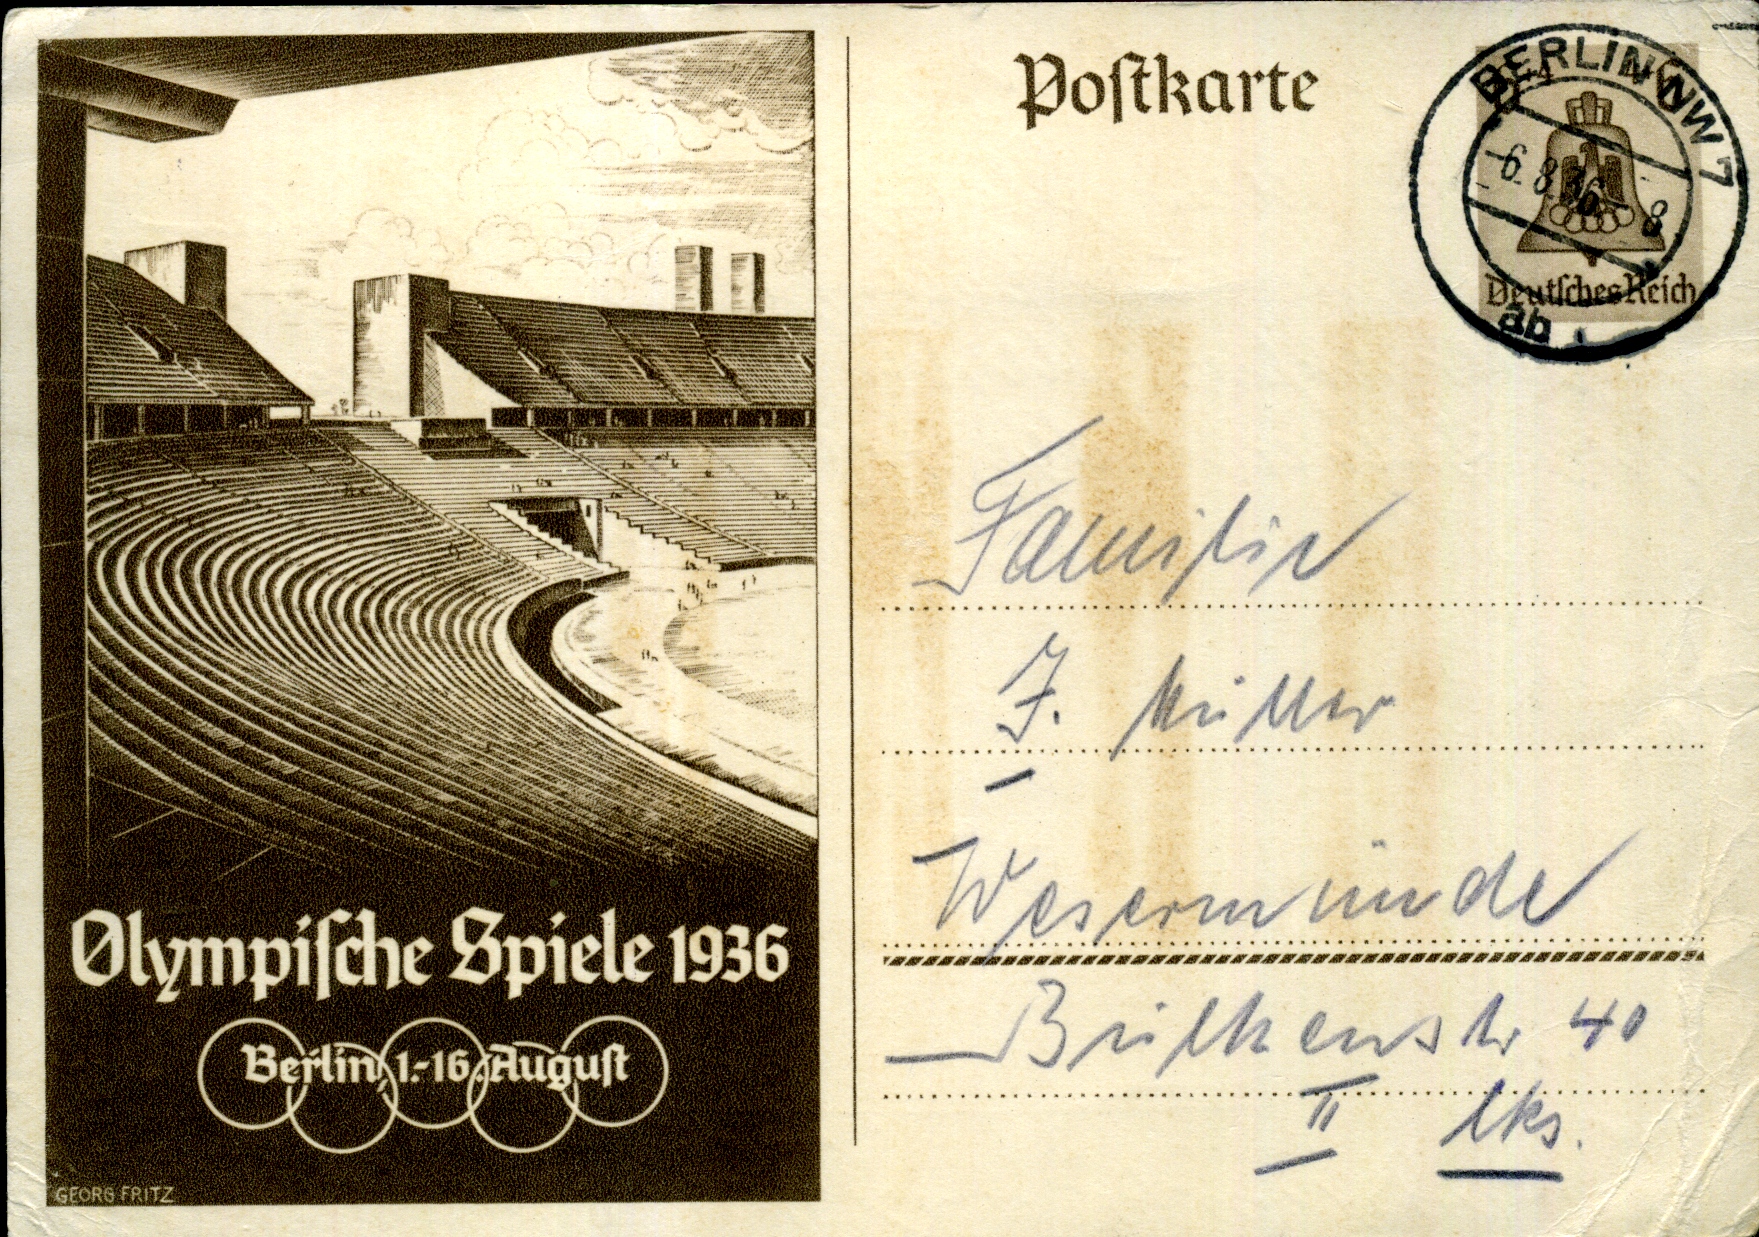 Poſtkarte
BERLIN NW 7
-6.8.36-8
Deutſches Reich
ab
Familie
J. Müller
Wesermünde
40
II lks.
Olympiſche Spiele 1936
Berlin, 1.-16. Auguſt
GEORG FRITZ